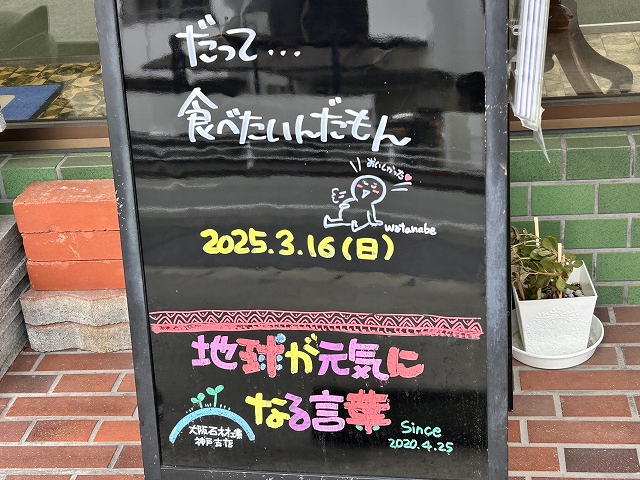 だって...
食べたいんだもん
おいしかった♥
watanabe
2025.3.16(日)
地球が元気に
なる言葉
大阪石材工業
神戸吉店
Since
2020.4.25